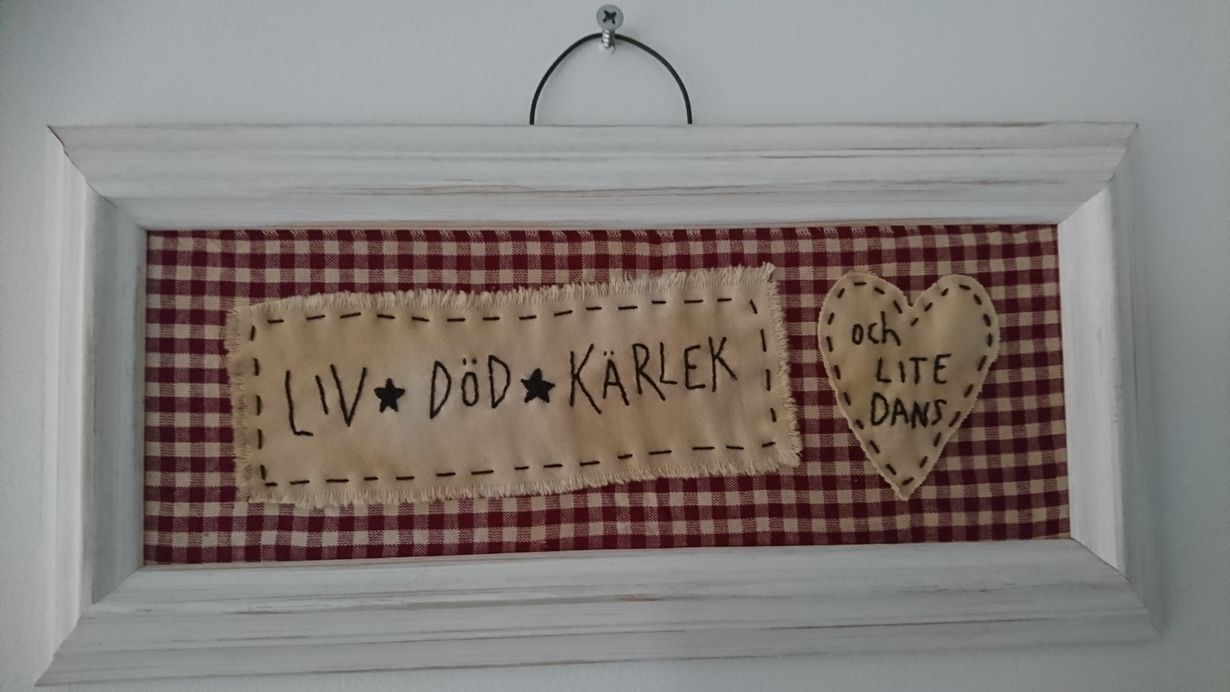 LIV ★ DÖD ★ KÄRLEK
och
LITE
DANS